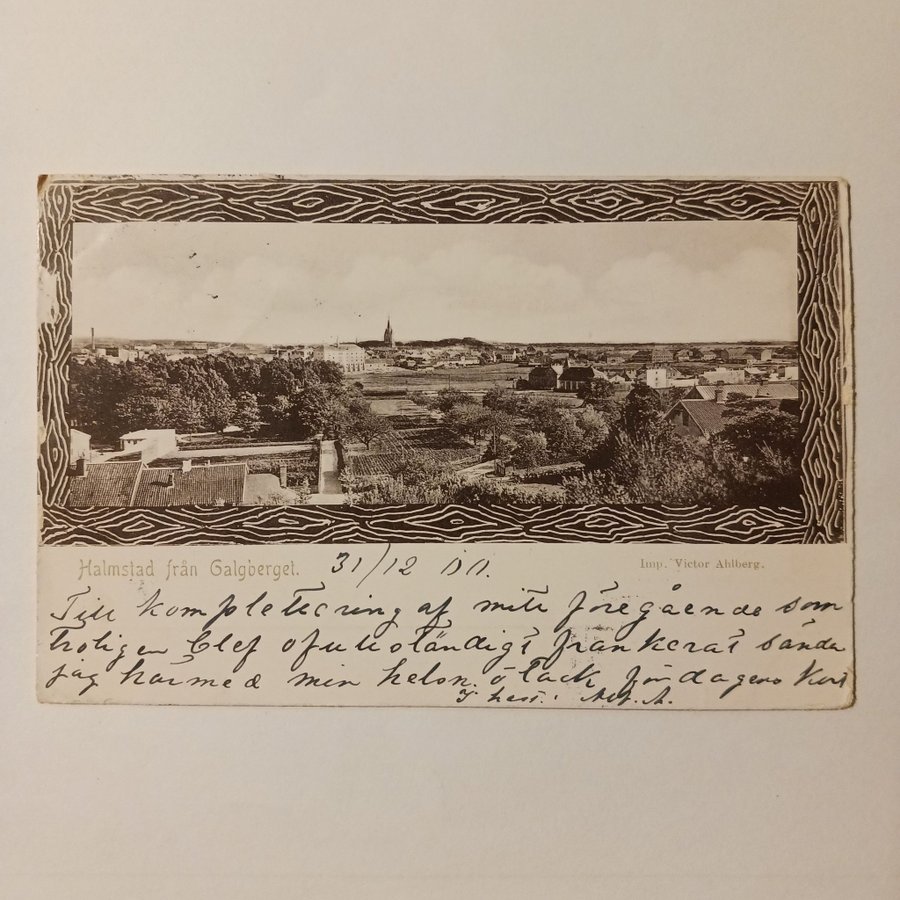 Halmstad från Galgberget. 31/12 00.
Imp. Victor Ahlberg.
Till komplettering af mitt föregående som
troligen blef ofullständigt frankerat sända
jag härmed min helsn. o tack för dagens kort
I hast: Alf. A.